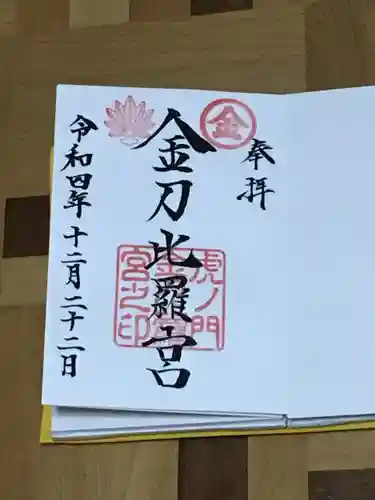 奉拝
金
金刀比羅宮
虎ノ門
金刀比羅
宮之印
令和四年十二月二十二日